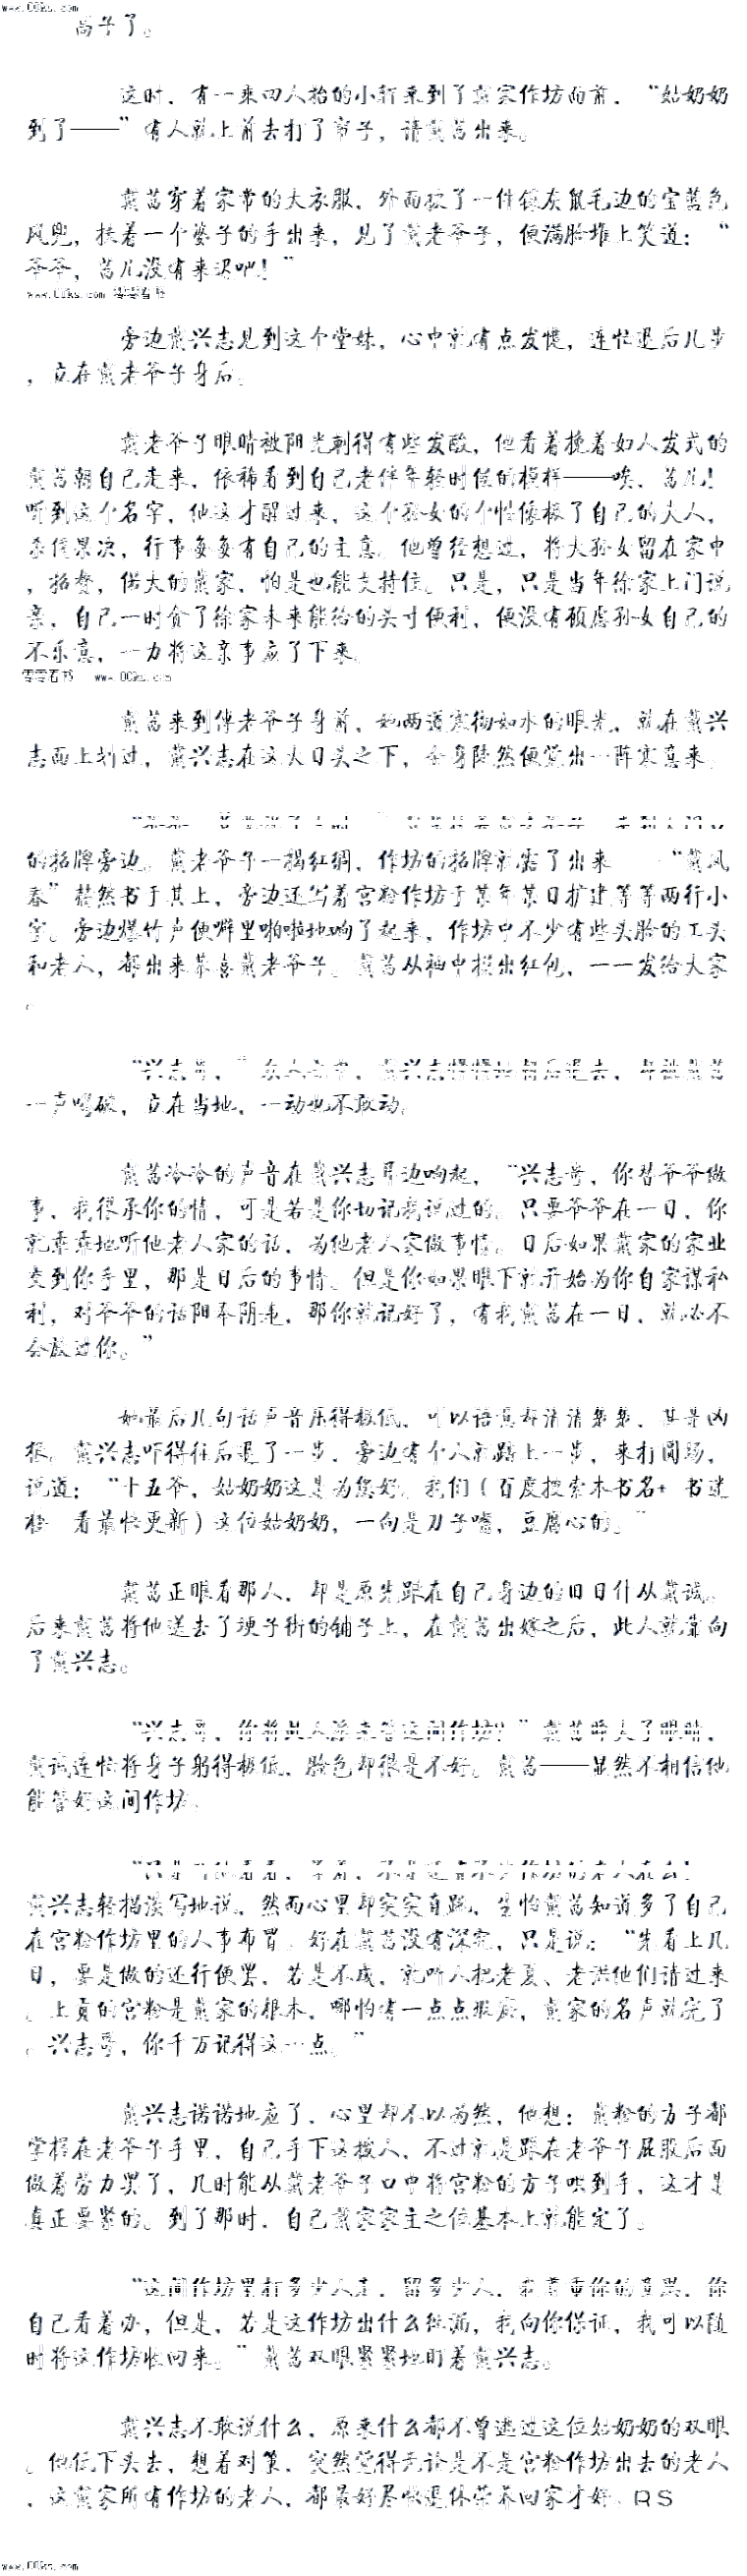 www.00ks.com
啇子了。
这时，有一乘四人抬的小轿来到了戴家作坊面前，“姑奶奶
到了——”有人就上前去打了帘子，请戴茜出来。
戴茜穿着家常的大衣服，外面披了一件镶灰鼠毛边的宝蓝色
风兜，扶着一个婆子的手出来，见了戴老爷子，便满脸堆上笑道：“
爷爷，茜儿没有来迟吧！”
www.00ks.com 零零看书
旁边戴兴志见到这个堂妹，心中就有点发憷，连忙退后几步
，立在戴老爷子身后。
戴老爷子眼睛被阳光刺得有些发酸，他看着挽着妇人发式的
戴茜朝自己走来，依稀看到自己老伴年轻时候的模样——唉，茜儿！
听到这个名字，他这才醒过来，这个孙女的个性像极了自己的夫人，
杀伐果决，行事每每有自己的主意。他曾经想过，将大孙女留在家中
，招赘，偌大的戴家，怕是也能支持住。只是，只是当年徐家上门说
亲，自己一时贪了徐家未来能给的头寸便利，便没有顾虑孙女自己的
不乐意，一力将这亲事应了下来。
零零看书 www.00ks.com
戴茜来到傅老爷子身前，她两道寒彻如水的眼光，就在戴兴
志面上划过，戴兴志在这大日头之下，全身陡然便觉出一阵寒意来。
的招牌旁边。戴老爷子一揭红绸，作坊的招牌就露了出来——“戴凤
春”赫然书于其上，旁边还写着宫粉作坊于某年某日扩建等等两行小
字。旁边爆竹声便噼里啪啦地响了起来，作坊中不少有些头脸的工头
和老人，都出来恭喜戴老爷子。戴茜从袖中摸出红包，一一发给大家
。
“兴志哥，”众人之中，戴兴志慢慢地朝后退去，却被戴茜
一声喝破，立在当地，一动也不敢动。
戴茜冷冷的声音在戴兴志耳边响起，“兴志哥，你替爷爷做
事，我很承你的情，可是若是你切记我说过的。只要爷爷在一日，你
就乖乖地听他老人家的话，为他老人家做事情。日后如果戴家的家业
交到你手里，那是日后的事情。但是你如果眼下就开始为你自家谋私
利，对爷爷的话阳奉阴违，那你就记好了，有我戴茜在一日，就必不
会放过你。”
她最后几句话声音压得极低，可以语意却清清楚楚，甚是凶
狠。戴兴志吓得往后退了一步，旁边有个人就踏上一步，来打圆场，
说道：“十五爷，姑奶奶这是为您好。我们（百度搜索本书名+ 书迷
楼 看最快更新）这位姑奶奶，一向是刀子嘴，豆腐心的。”
戴茜正眼看那人，却是原先跟在自己身边的旧日什从戴诚。
后来戴茜将他送去了埂子街的铺子上，在戴茜出嫁之后，此人就靠向
了戴兴志。
“兴志哥，你将此人派来管这间作坊？”戴茜睁大了眼睛，
戴诚连忙将身子躬得极低，脸色却很是不好。戴茜——显然不相信他
能管好这间作坊。
戴兴志轻描淡写地说，然而心里却突突直跳，生怕戴茜知道多了自己
在宫粉作坊里的人事布置。好在戴茜没有深究，只是说：“先看上几
日，要是做的还行便罢，若是不成，就听人把老夏、老洪他们请过来
。上贡的宫粉是戴家的根本，哪怕有一点点瑕疵，戴家的名声就完了
。兴志哥，你千万记得这一点。”
戴兴志诺诺地应了，心里却不以为然，他想：戴粉的方子都
掌握在老爷子手里，自己手下这拨人，不过就是跟在老爷子屁股后面
做着劳力罢了，几时能从戴老爷子口中将宫粉的方子哄到手，这才是
真正要紧的。到了那时，自己戴家家主之位基本上就能定了。
“这间作坊里打多少人走，留多少人，我尊重你的意思，你
自己看着办，但是，若是这作坊出什么纰漏，我向你保证，我可以随
时将这作坊收回来。”戴茜双眼紧紧地盯着戴兴志。
戴兴志不敢说什么，原来什么都不曾逃过这位姑奶奶的双眼
。他低下头去，想着对策，突然觉得无论是不是宫粉作坊出去的老人
，这戴家所有作坊的老人，都最好尽快退休荣养回家才好。RS
www.00ks.com